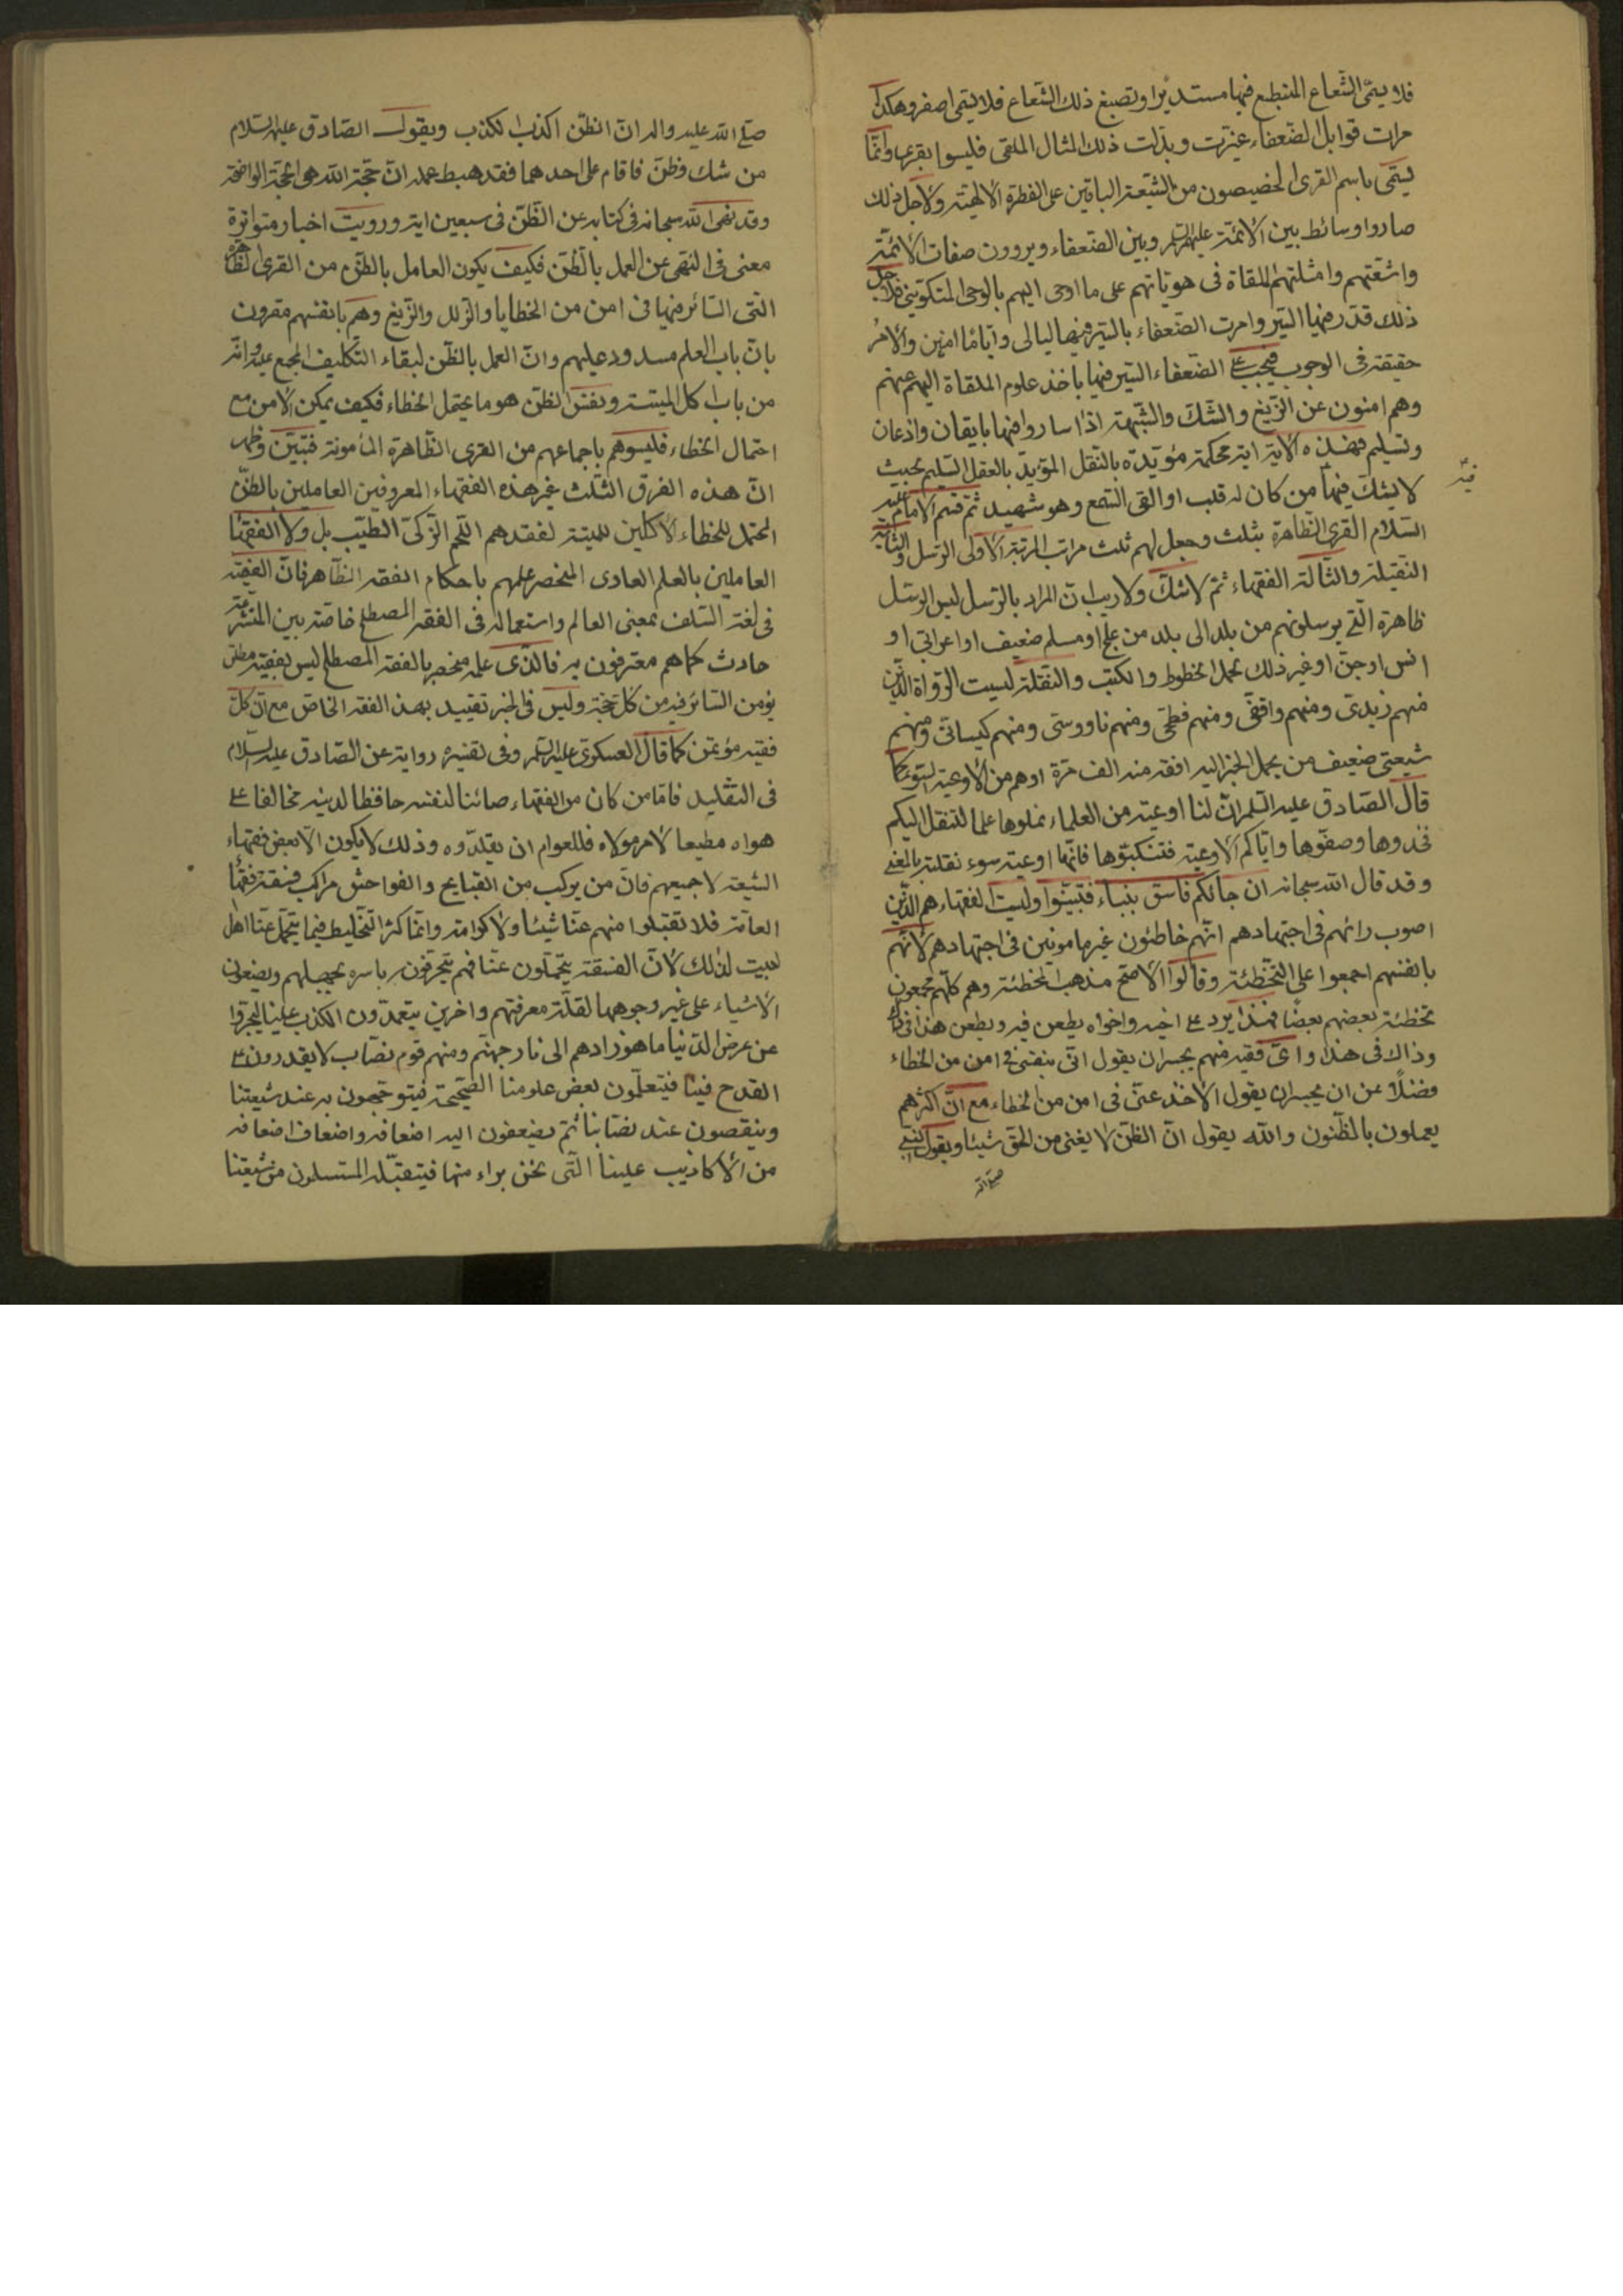 فلا يسمّى الشّعاع المنطبع فيها مستديرا وتصبغ ذلك الشّعاع فلا يسمّى اصفر وهكذا
مرات قوابل الضّعفاء غيّرت وبدّلت ذلك المثال الملقى فليسوا بقرى وانّما
يسمّى باسم القرى الخصيصون من الشّيعة الباقين على الفطرة الالهيّة ولاجل ذلك
صاروا وسائط بين الائمّة عليهم السّلم وبين الضّعفاء ويروون صفات الائمّة
واشعّتهم وامثلتهم الملقاة فى هويّاتهم على ما اوحى اليهم بالوحى التكوينى فلاجل
ذلك قدّر فيها السّير وامرت الضّعفاء بالسّير فيها ليالى وايّاما امنين والامر
حقيقة فى الوجوب فيجب على الضّعفاء السّير فيها باخذ علوم الملقاة اليهم عنهم
وهم امنون عن الزّيغ والشّكّ والشّبهة اذا ساروا فيها بايقان واذعان
وتسليم فهذه الاية اية محكمة مؤيّدة بالنّقل المؤيّد بالعقل السّليم بحيث
لا يشكّ فيها من كان له قلب او القى السّمع وهو شهيد ثمّ قسم الامام عليه
السّلام القرى الظّاهرة بثلث وجعل لهم ثلث مراتب المرتبة الاولى الرّسل والثّانية
النّقلة والثّالثة الفقهاء ثمّ لا شكّ ولا ريب انّ المراد بالرّسل ليس الرّسل
ظاهرة الّتى يرسلونهم من بلد الى بلد من علج او مسلم ضعيف او اعرابى او
انس او جنّ او غير ذلك بحمل الخطوط والكتب والنّقلة ليست الرّواة الّذين
منهم زيدىّ ومنهم واقفىّ ومنهم فطحىّ ومنهم ناووسىّ ومنهم كيسانىّ ومنهم
شيعىّ ضعيف من يحمل الخبر اليه افقه منه الف مرّة او هم من الاوعية السّوء كما
قال الصّادق عليه السّلم انّ لنا اوعية من العلماء نملوها علما لتنقل اليكم
فخذوها وصفّوها وايّاكم الاوعية فتنكّبوها فانّها اوعية سوء نقلته بالمعنى
وقد قال الله سبحانه ان جائكم فاسق بنباء فتبيّنوا وليست الفقهاء هم الّذين
اصوب رائهم فى اجتهادهم انّهم خاطئون غير مامونين فى اجتهادهم لانّهم
بانفسهم اجمعوا على التّخطئة وقالوا الاصحّ مذهب المخطئة وهم كلّهم مجمعون
تخطئة بعضهم بعضًا فهذا يردّ على اخيه واخواه يطعن فيه ويطعن هذا فى ذاك
وذاك فى هذا واىّ فقيه منهم يجسر ان يقول انّى بنفسى فى امن من الخطاء
فضلًا عن ان يجسر ان يقول الاخذ عنّى فى امن من الخطاء مع انّ اكثرهم
يعملون بالظّنون والله يقول انّ الظّنّ لا يغنى من الحقّ شيئا ويقول النّبى
صلّى الله
صلّى الله عليه واله انّ الظّنّ اكذب الكذب ويقول الصّادق عليه السّلام
من شكّ وظنّ فاقام على احدهما فقد هبط عمله انّ حجّة الله هى الحجّة الواضحة
وقد نهى الله سبحانه فى كتابه عن الظّنّ فى سبعين اية ورويت اخبار متواترة
معنى فى النّهى عن العمل بالظّنّ فكيف يكون العامل بالظّنّ من القرى الظّاهرة
الّتى السّائر فيها فى امن من الخطايا والزّلل والزّيغ وهم بانفسهم مقرّون
بانّ باب العلم مسدود عليهم وانّ العمل بالظّنّ لبقاء التّكليف المجمع عليه وانّه
من باب اكل الميتة ونفس الظّنّ هو ما يحتمل الخطاء فكيف يمكن الامن مع
احتمال الخطاء فليسوهم باجماعهم من القرى الظّاهرة المأمونة فتبيّن وظهر
انّ هذه الفرق الثّلث غير هذه الفقهاء المعروفين العاملين بالظّنّ
المحتمل للخطاء الاكلين للميتة لفقدهم اللّحم الزّكىّ الطّيّب بل ولا الفقهاء
العاملين بالعلم العادى المنحصر علمهم باحكام الفقه الظّاهر فانّ الفقيه
فى لغة السّلف بمعنى العالم واستعماله فى الفقه المصطلح خاصّة بين المتشرّعة
حادث كما هم معترفون به فالّذى علمه منحصر بالفقه المصطلح ليس بفقيه مطلق
يؤمن السّائر فيه من كلّ جهة وليس فى الخبر تقييد بهذ الفقه الخاصّ مع انّ كلّ
فقيه مؤتمن كما قال العسكرى عليه السّلم وفى تفسيره رواية عن الصّادق عليه السّلام
فى التّقليد فامّا من كان من الفقهاء صائنا لنفسه حافظا لدينه مخالفا على
هواه مطيعا لامر مولاه فللعوام ان يقلّدوه وذلك لا يكون الّا بعض فقهاء
الشّيعة لا جميعهم فانّ من يركب من القبايح والفواحش مراكب فسقة فقهاء
العامّة فلا تقبلوا منهم عنّا شيئا ولا كرامة وانّما كثر التّخليط فيما يتحمّل عنّا اهل
البيت لذلك لانّ الفسقة يتحمّلون عنّا فهم يحرّفونه باسره بجهلهم ويضعون
الاشياء على غير وجوهها لقلّة معرفتهم واخرين يتعمّدون الكذب علينا ليجرّوا
من عرض الدّنيا ما هو زادهم الى نار جهنّم ومنهم قوم نصّاب لا يقدرون على
القدح فينا فيتعلّمون بعض علومنا الصّحيحة فيتوجّهون به عند شيعتنا
وينقصون عند نصّابنا ثمّ يضعفون اليه اضعافه واضعاف اضعافه
من الاكاذيب علينا الّتى نحن براء منها فيتقبّله المستسلمون من شيعتنا